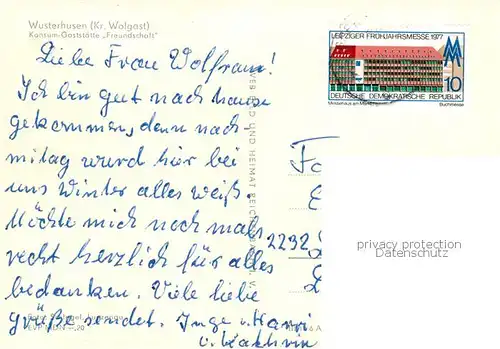 Wusterhusen (Kr. Wolgast)
Konsum-Gaststätte „Freundschaft"
Liebe Frau Wolfram!
Ich bin gut nach hause
gekommen, denn nach
mitag wurd hier bei
uns Winter alles weiß.
Möchte mich noch mals
recht herzlich für alles
bedanken. Viele liebe
grüße sendet. Inge u. Harri
u. Kathrin
EVP MDN -,20
UND HEIMAT REICHENB
LEIPZIGER FRÜHJAHRSMESSE 1977
MM
10
DEUTSCHE DEMOKRATISCHE REPUBLIK
Messehaus am Markt
Buchmesse
2232
privacy protection
Datenschutz